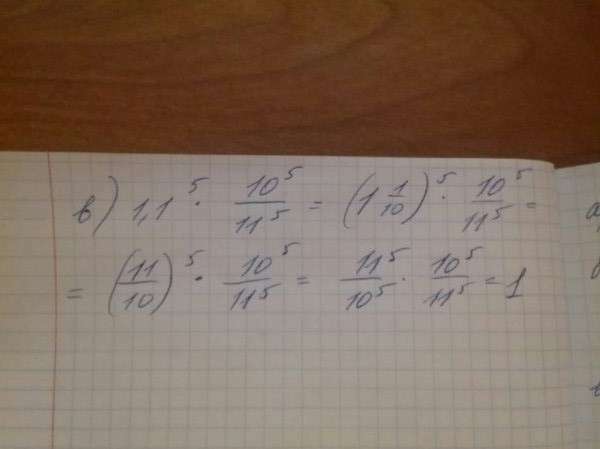 в) 1,1⁵ · 10⁵/11⁵ = (1 1/10)⁵ · 10⁵/11⁵ =
= (11/10)⁵ · 10⁵/11⁵ = 11⁵/10⁵ · 10⁵/11⁵ = 1